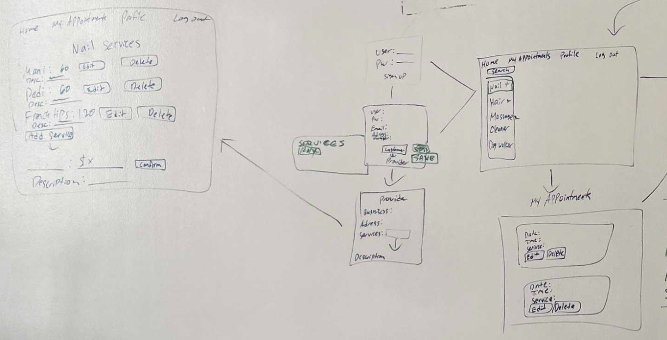 Home My Appointments Profile Log out
Nail Services
Mani: 60 Edit Delete
Desc:
Pedi: 60 Edit Delete
Desc:
120 Edit Delete
Desc:
Add Service
$ x Confirm
Description:
User:
Pw:
Sign up
User:
Pw:
Email:
Customer
Provider
Services
SAVE
Provider
Business:
Adress:
Services:
Description
Home My Appointments Profile Log out
Search
Nail
Hair
Massage
My Appointments
Date:
Time:
Service:
Edit Delete
Date:
Time:
Service:
Edit Delete